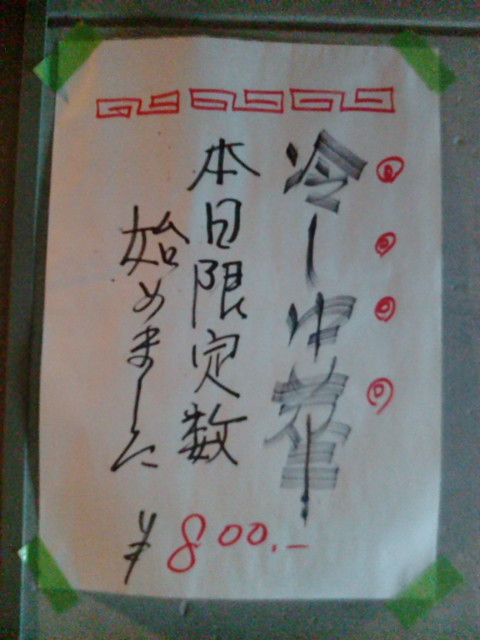 冷し中華
本日限定数
始めました
¥800.-